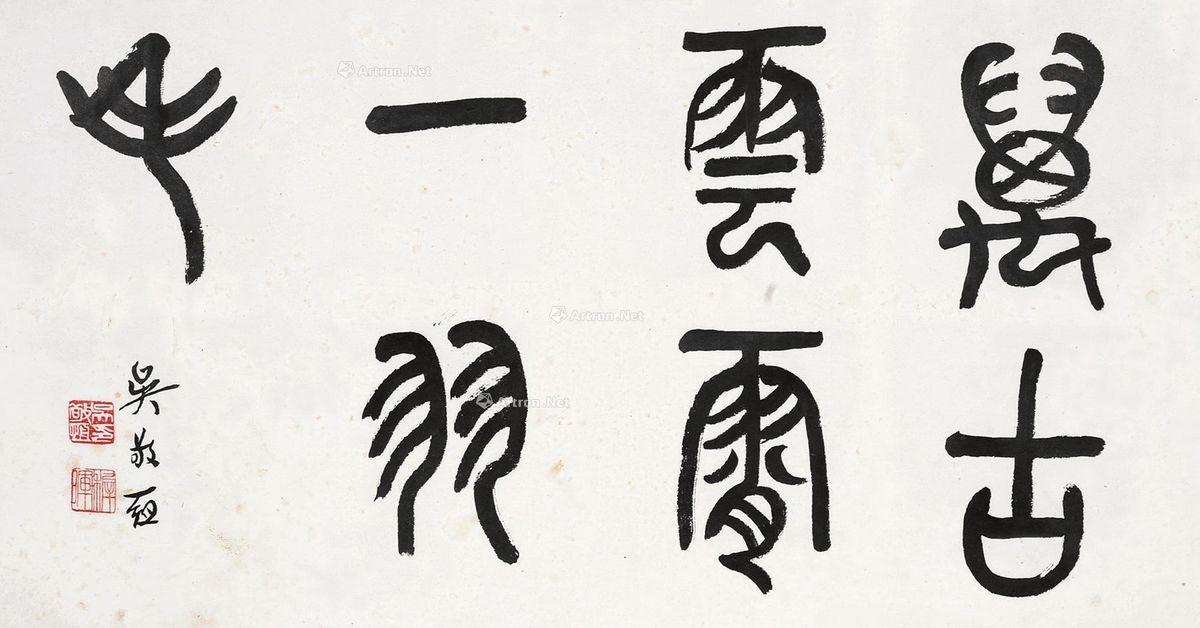 萬古
雲霄
一羽
毛
吳敬恆
稚暉
Artron.Net
Artron.Net
Artron.Net